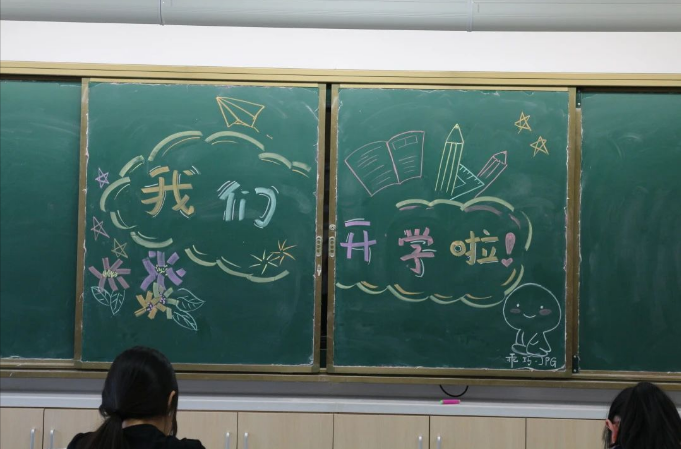 我们
开学啦!
乖巧.JPG